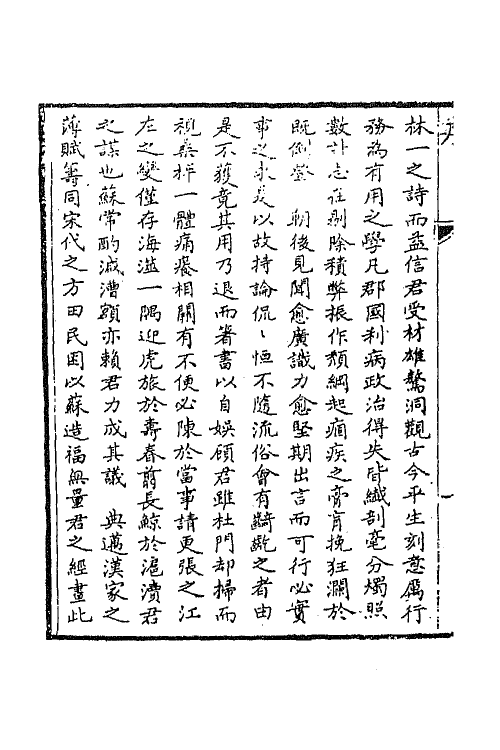 林一之詩而益信君受材雄騖洞觀古今平生刻意厲行
務為有用之學凡郡國利病政治得失皆纖剖毫分燭照
數計志在剔除積弊振作頹綱起痼疾之膏肓挽狂瀾於
既倒登 朝後見聞愈廣識力愈堅期出言而可行必實
事之求是以故持論侃〻恒不隨流俗會有齮齕之者由
是不獲竟其用乃退而著書以自娛顧君雖杜門却掃而
視桑梓一體痛癢相關有不便必陳於當事請更張之江
左之變僅存海澨一隅迎虎旅於壽春前長鯨於滬瀆君
之謀也蘇常酌減漕額亦賴君力成其議 典邁漢家之
薄賦籌同宋代之方田民困以蘇造福無量君之經畫此